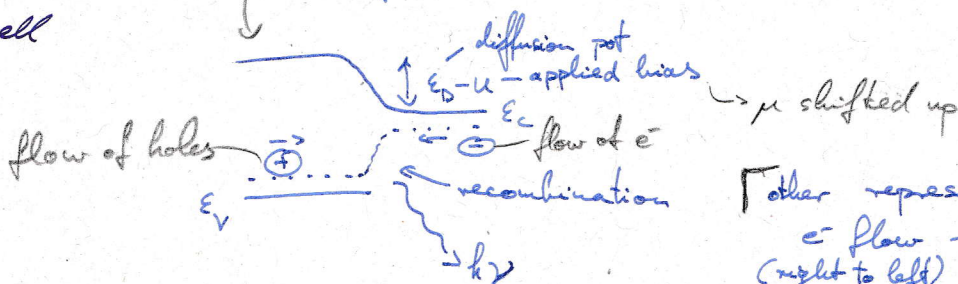 ell
diffusion pot
ε_D - u - applied bias
→ μ shifted up
ε_c
flow of holes
+
-
flow of e⁻
recombination
ε_v
other repres
e⁻ flow -
(right to left)
hν